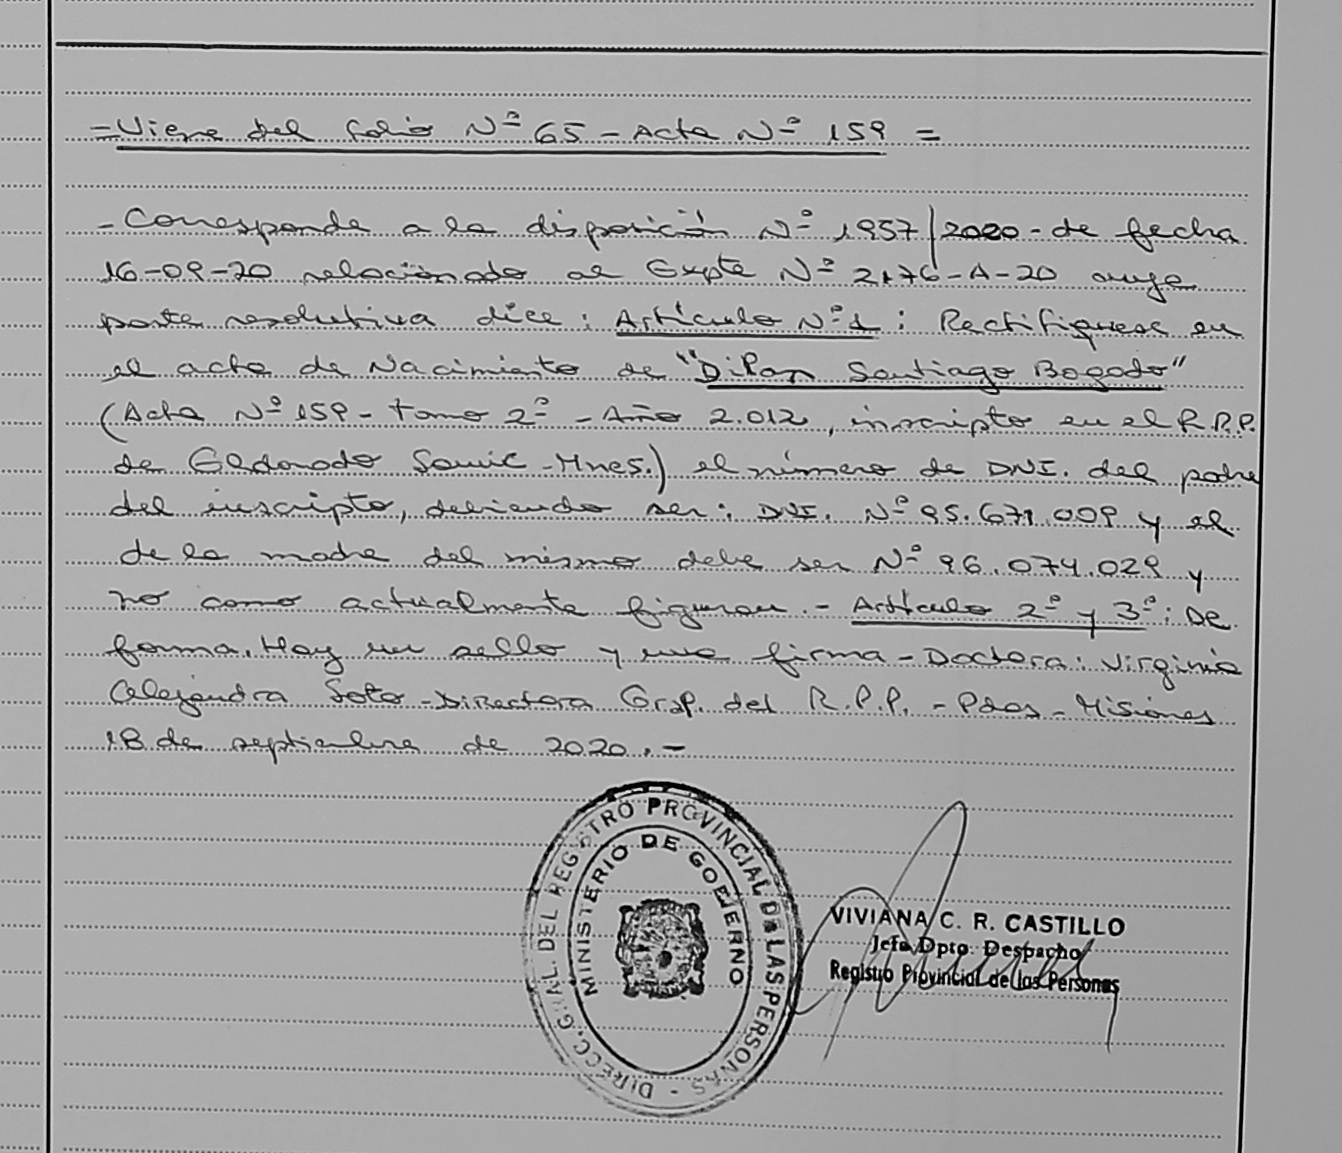 =Viene del folio Nº 65 - Acta Nº 159 =
- Corresponde a la disposición Nº 1957/2020 - de fecha
16-09-20 relacionado al Expte Nº 2176-A-20 cuya
parte resolutiva dice: Artículo Nº 1: Rectifíquese en
el acta de Nacimiento de "Dilan Santiago Bogado"
(Acta Nº 159 - tomo 2º - Año 2.012, inscripto en el R.P.P.
de Eldorado Mnes.) el número de DNI. del padre
del inscripto, debiendo ser: DNI. Nº 95.671.009 y el
de la madre del mismo debe ser Nº 96.074.029 y
no como actualmente figuran. - Artículo 2º y 3º: De
forma. Hay un sello y una firma - Doctora: Virginia
Alejandra Soto - Directora Gral. del R.P.P. - Pdas - Misiones
18 de septiembre de 2020. -
DIRECC. GRAL. DEL REGISTRO PROVINCIAL De LAS PERSONAS -
MINISTERIO DE GOBIERNO
VIVIANA C. R. CASTILLO
Jefa Dpto. Despacho
Registro Provincial de las Personas